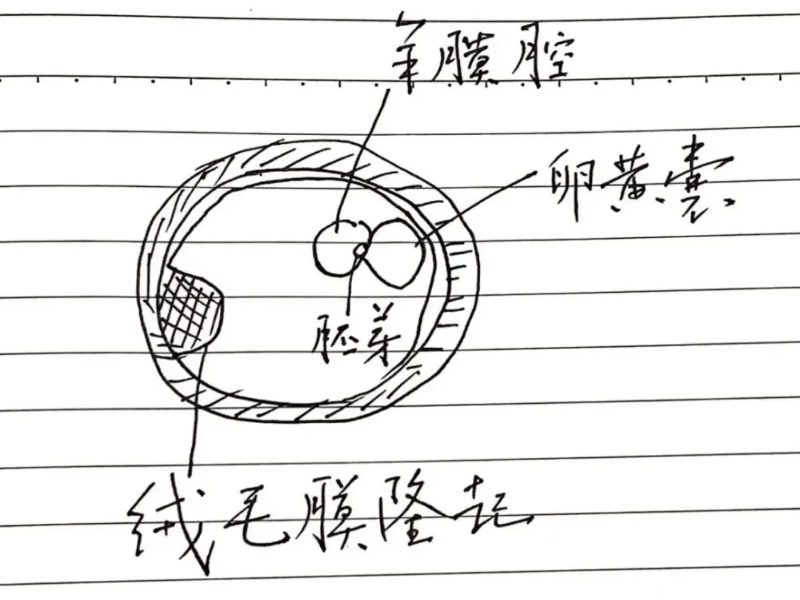 羊膜腔
卵黄囊
胚芽
绒毛膜隆起